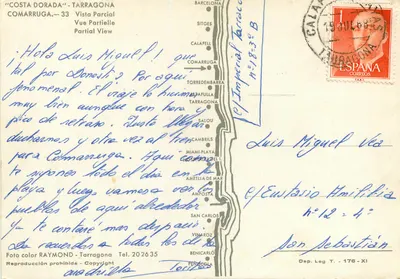 "COSTA DORADA" - TARRAGONA
COMARRUGA.— 33 Vista Parcial
Vue Partielle
Partial View
¡Hola Luis Miguel! que
tal por Donosti? Por aquí
fenomenal. El viaje lo hicimos
muy bien aunque con hora y
pico de retraso. Justo llegar
ducharnos y otra vez al tren
para Comarruga. Aquí como
te supones todo el día en la
playa y luego vamos a ver los
pueblos de aquí alrededor
ya te contaré mas despacio.
Da recuerdos a todos los de la
cuadrilla
Foto color RAYMOND - Tarragona Tel. 202635
Reproducción prohibida - Copyright
BARCELONA
SITGES
CALAFELL
COMARRUGA
TORREDEMBARRA
TARRAGONA
SALOU
MIAMI PLAYA
AMETLLA DE MAR
SAN CARLOS
VINAROZ
BENICARLO
c/ Imperial Tarraco
nº-8-3º B
1 PTA
ESPAÑA
CORREOS
TARRAGONA
Luis Miguel Vea
c/ Eustasio Amilibia
nº 12 - 4º
San Sebastián
Dep. Leg. T. - 176 - XI